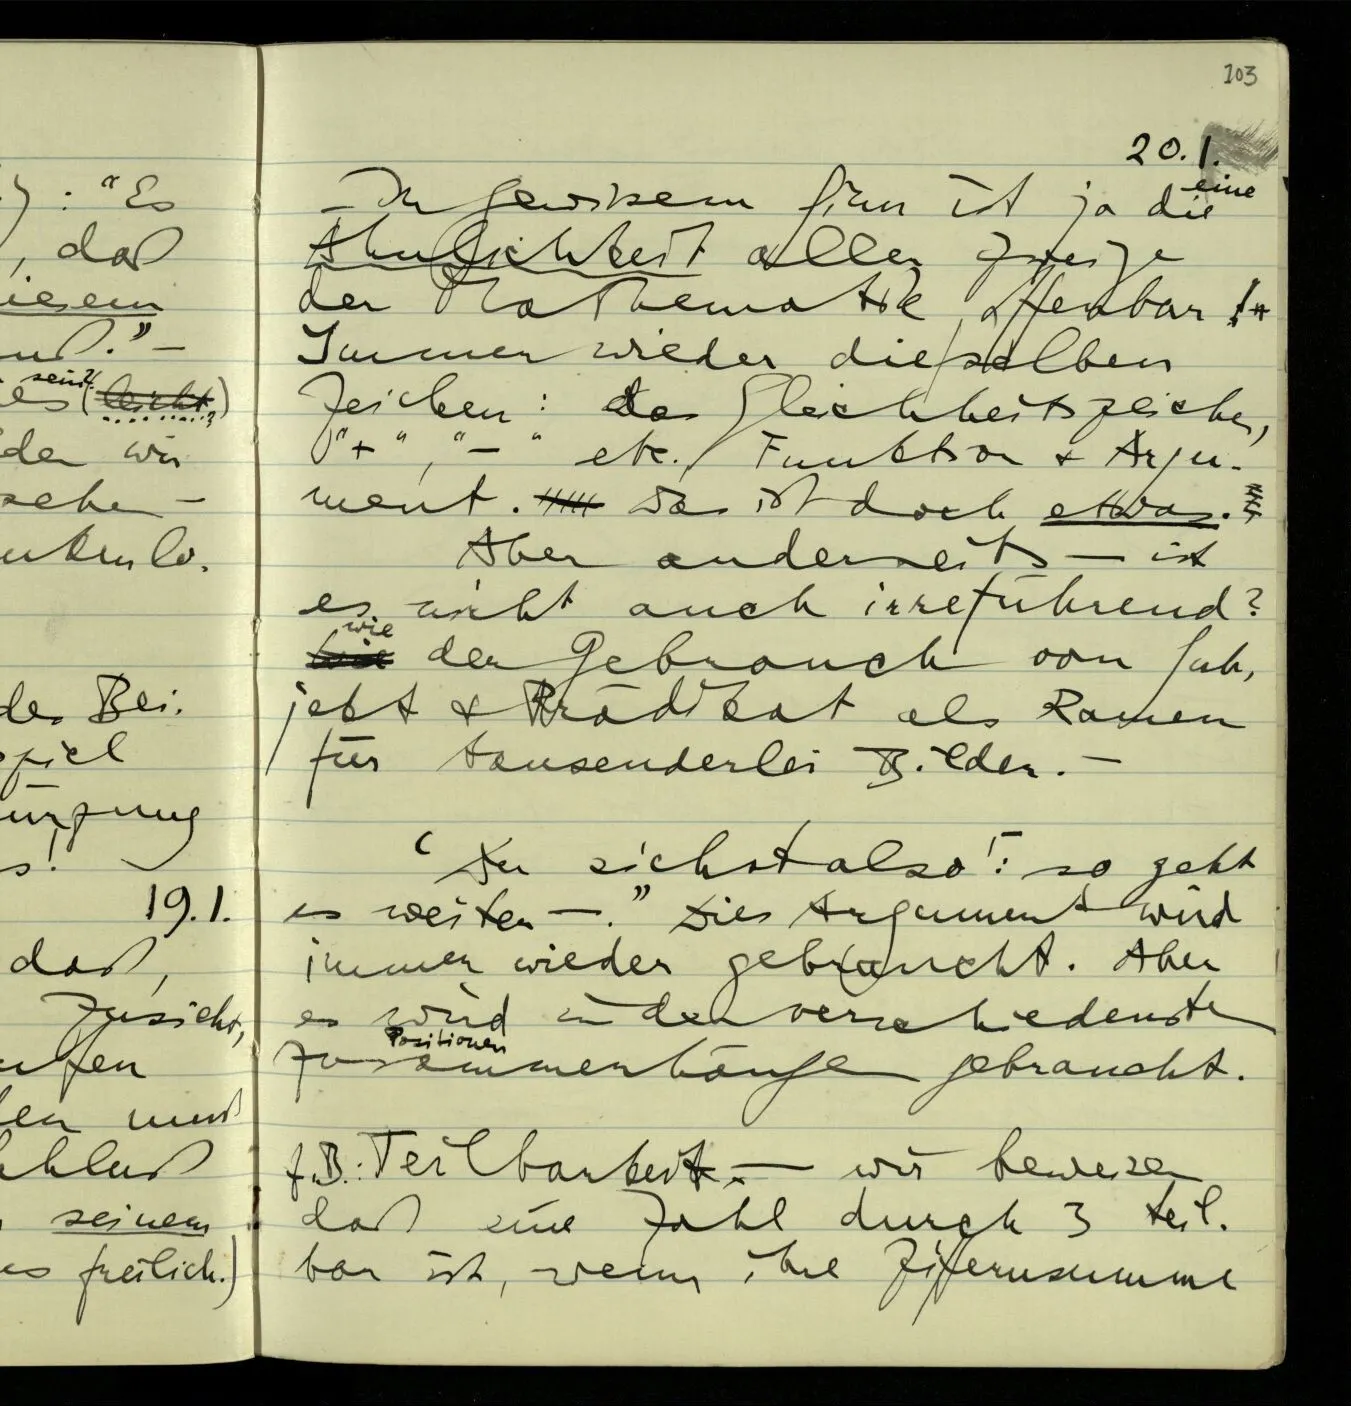 ): "Es
, daß
iesem
muß." –
sein?
es (leicht?)
der wir
sehe –
unkenlo.
des Bei.
spiel
ürzung
s!
19.1.
daß,
zusieht,
ufen
en muß
chluß
seinem
es freilich.)
103
20.1.
eine
– In gewissem Sinn ist ja die
Ähnlichkeit aller Zweige
der Mathematik offenbar!
Immer wieder dieselben
Zeichen: das Gleichheitszeichen,
"+", "–" etc. Funktion & Argu-
ment. Das ist doch etwas.
Aber anderseits – ist
es nicht auch irreführend?
wie
wie der Gebrauch von Sub,
jekt & Prädikat als Ramen
für tausenderlei Bilder. –
"Du siehst also!: so geht
es weiter –." Dies Argument wird
immer wieder gebraucht. Aber
es wird in den verschiedensten
Positionen
Zusammenhängen gebraucht.
z.B.: Teilbarkeit. – wir beweisen
daß eine Zahl durch 3 teil.
bar ist, wenn ihre Ziffernsumme